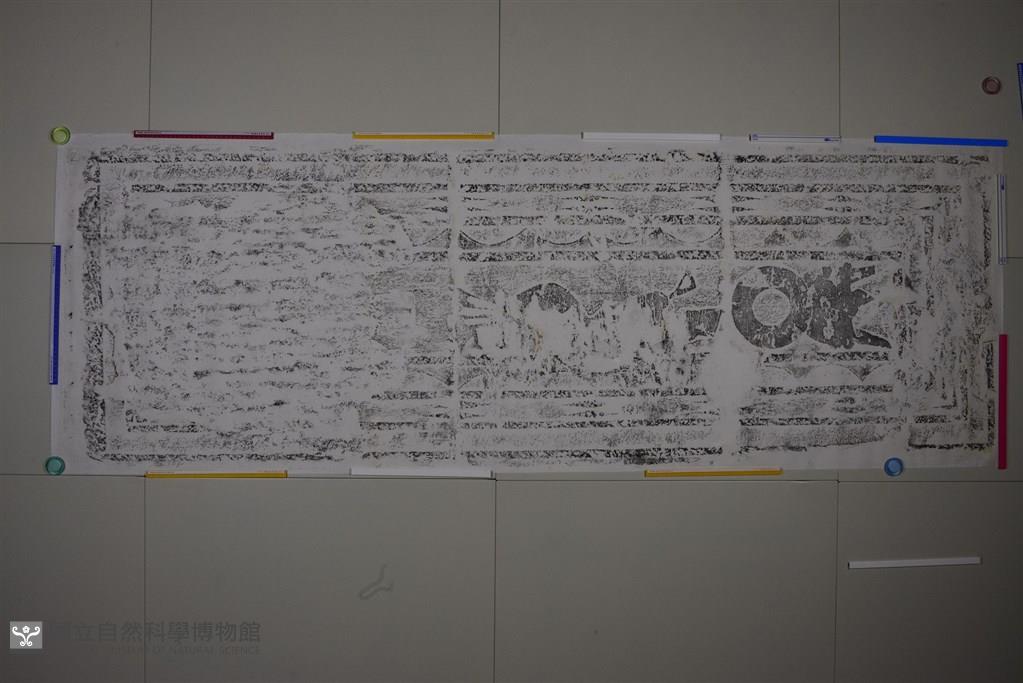 國立自然科學博物館
MUSEUM OF NATURAL SCIENCE